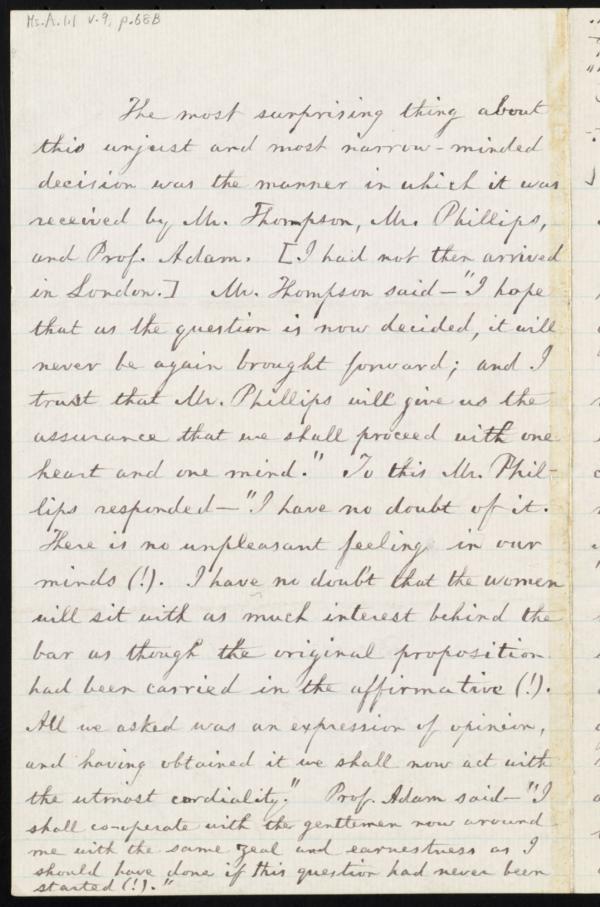 Ms.A.1.1 v.9, p.68B
The most surprising thing about
this unjust and most narrow-minded
decision was the manner in which it was
received by Mr. Thompson, Mr. Phillips,
and Prof. Adam. [I had not then arrived
in London.] Mr. Thompson said—"I hope
that as the question is now decided, it will
never be again brought forward; and I
trust that Mr. Phillips will give us the
assurance that we shall proceed with one
heart and one mind." To this Mr. Phil-
lips responded—"I have no doubt of it.
There is no unpleasant feeling in our
minds (!). I have no doubt that the women
will sit with as much interest behind the
bar as though the original proposition
had been carried in the affirmative (!).
All we asked was an expression of opinion,
and having obtained it we shall now act with
the utmost cordiality." Prof. Adam said—"I
shall co-operate with the gentlemen now around
me with the same zeal and earnestness as I
should have done if this question had never been
started (!)."